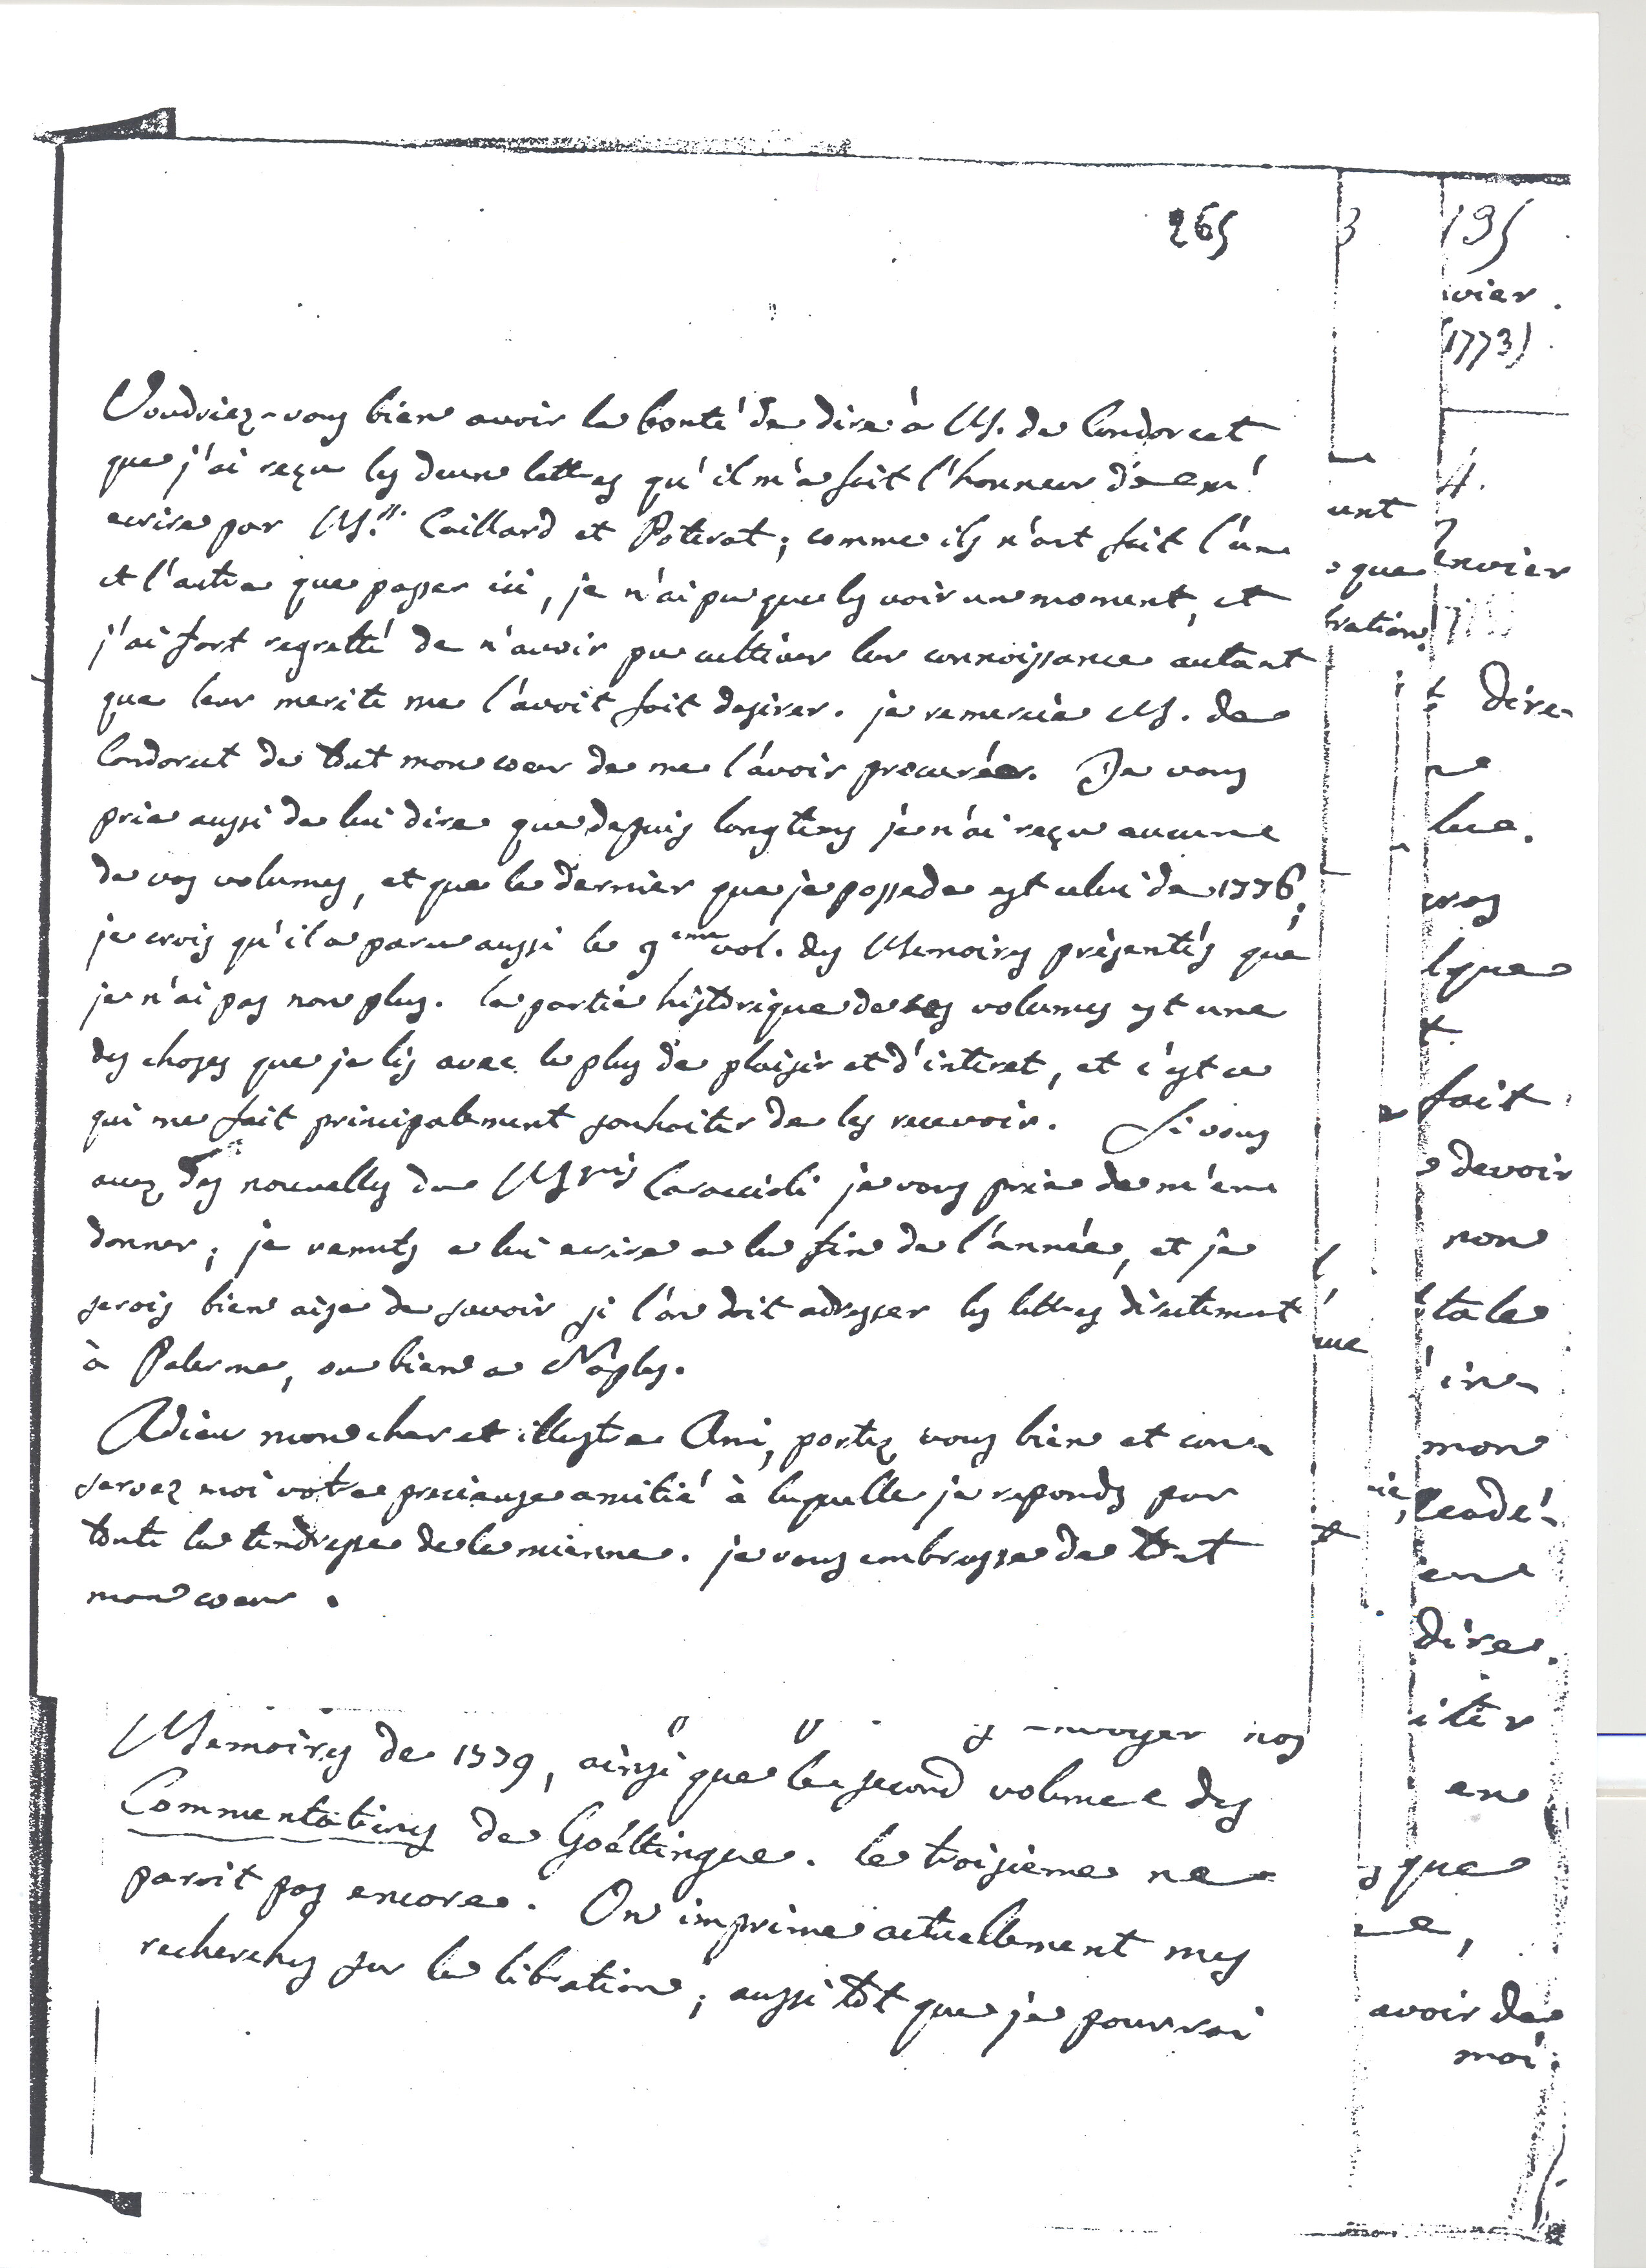 265
Voudriez-vous bien avoir la bonté de dire à M. de Condorcet
que j'ai reçu les deux lettres qu'il m'a fait l'honneur de m'
ecrire par M.rs Caillard et Poterat; comme ils n'ont fait l'un
et l'autre que passer ici, je n'ai pu que les voir un moment, et
j'ai fort regretté de n'avoir pu cultiver leur connoissance autant
que leur merite me l'avoit fait desirer. je remercie M. de
Condorcet de tout mon coeur de me l'avoir procurée. Je vous
prie aussi de lui dire que depuis longtems je n'ai reçu aucune
de vos volumes, et que le dernier que je possede est celui de 1776;
je crois qu'il a paru aussi le 9eme vol. des Memoires présentés que
je n'ai pas non plus. la partie historique de ces volumes est une
des choses que je lis avec le plus de plaisir et d'interet, et c'est ce
qui me fait principalement souhaiter de les recevoir. Si vous
avez des nouvelles du Mquis Caraccioli je vous prie de m'en
donner; je remets a lui ecrire a la fin de l'année, et je
serois bien aise de savoir si l'on doit adresser les lettres directement
à Palerme, ou bien a Naples.
Adieu mon cher et illustre Ami, portez vous bien et con-
servez moi votre precieuse amitié à laquelle je reponds par
toute la tendresse de la mienne. je vous embrasse de tout
mon coeur.
envoyer nos
Memoires de 1779, ainsi que le second volume des
Commentations de Goëttingue. le troisieme ne
paroit pas encore. On imprime actuellement mes
recherches sur la libration; aussi tôt que je pourrai
3
unt
que
bration
195
vier
(1773)
4.
envier
dire
lue.
lque
fait
devoir
non
tale
mon
cadé-
dire
iter
en
que
avoir de
moi